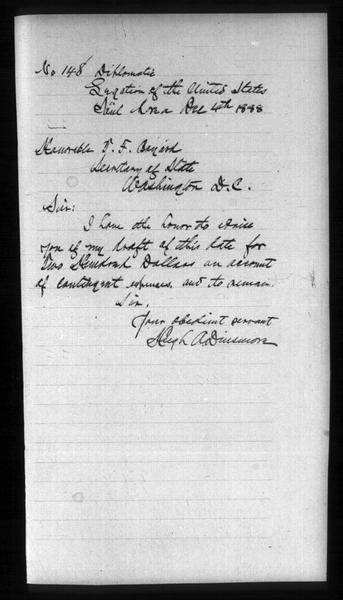 No 148 Diplomatic
Legation of the United States
Söul Korea Dec 4th 1888
Honorable T. F. Bayard
Secretary of State
Washington D.C.
Sir:
I have the honor to advise
you of my draft of this date for
Two Hundred Dollars on account
of contingent expenses. and to remain.
Sir,
Your obedient servant
Hugh A Dinsmore